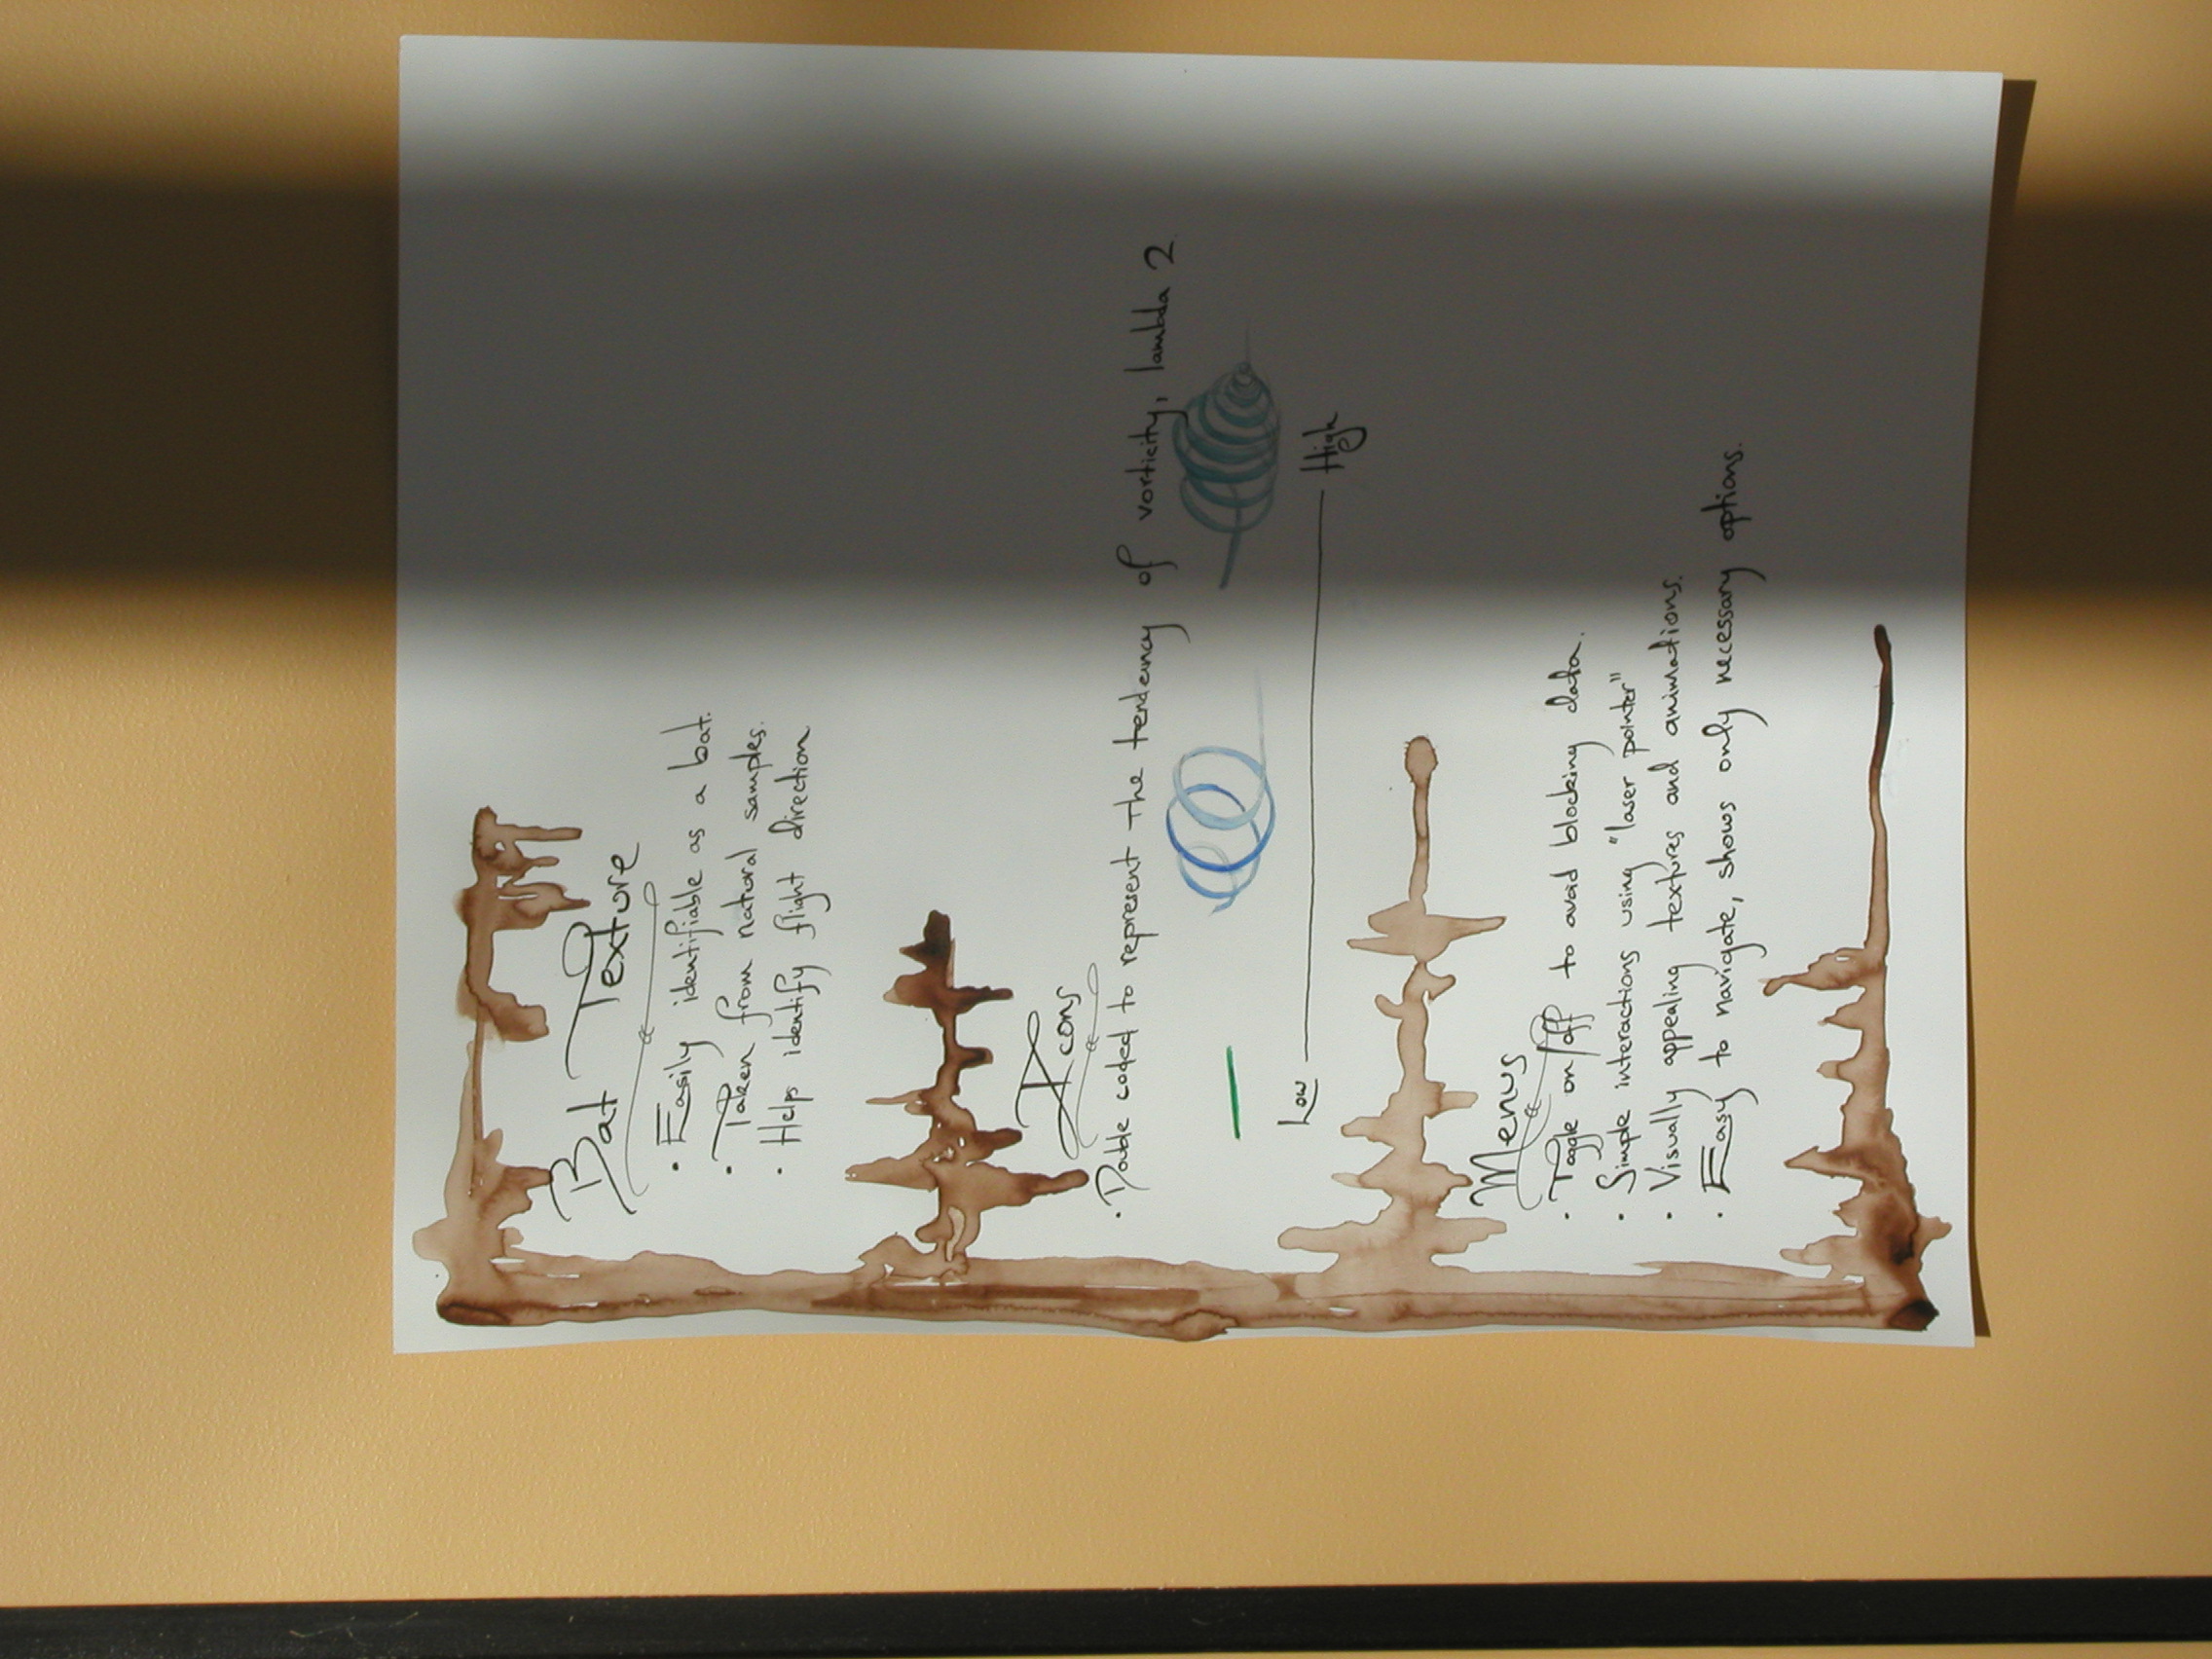 Bat Texture
· Easily identifiable as a bat.
· Taken from natural samples.
· Helps identify flight direction
Icons
· Double coded to represent the tendency of vorticity, lambda 2
Low High
Menus
· Toggle on/off to avoid blocking data.
· Simple interactions using "laser pointer"
· Visually appealing textures and animations.
· Easy to navigate, shows only necessary options.